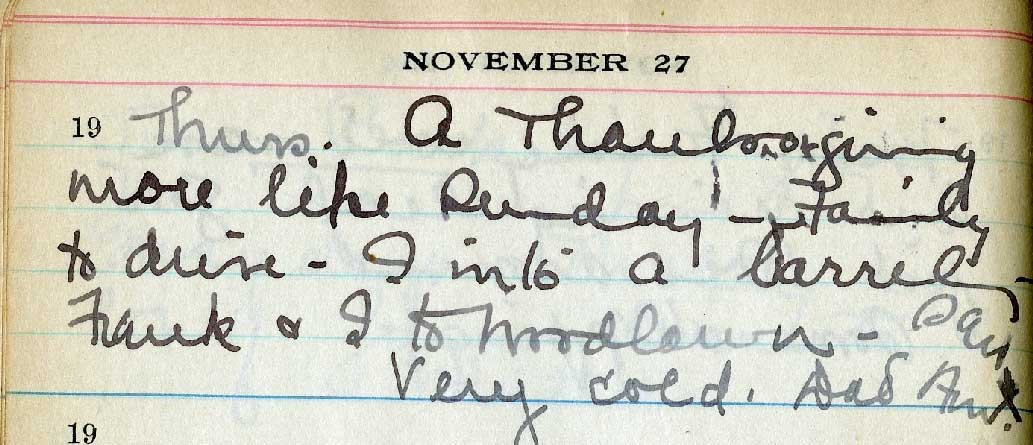 NOVEMBER 27
19 Thurs. A Thanksgiving
more like Sunday - Family
to drive - I into a barrel -
Frank & I to Woodlawn -
Very cold. Dad
19